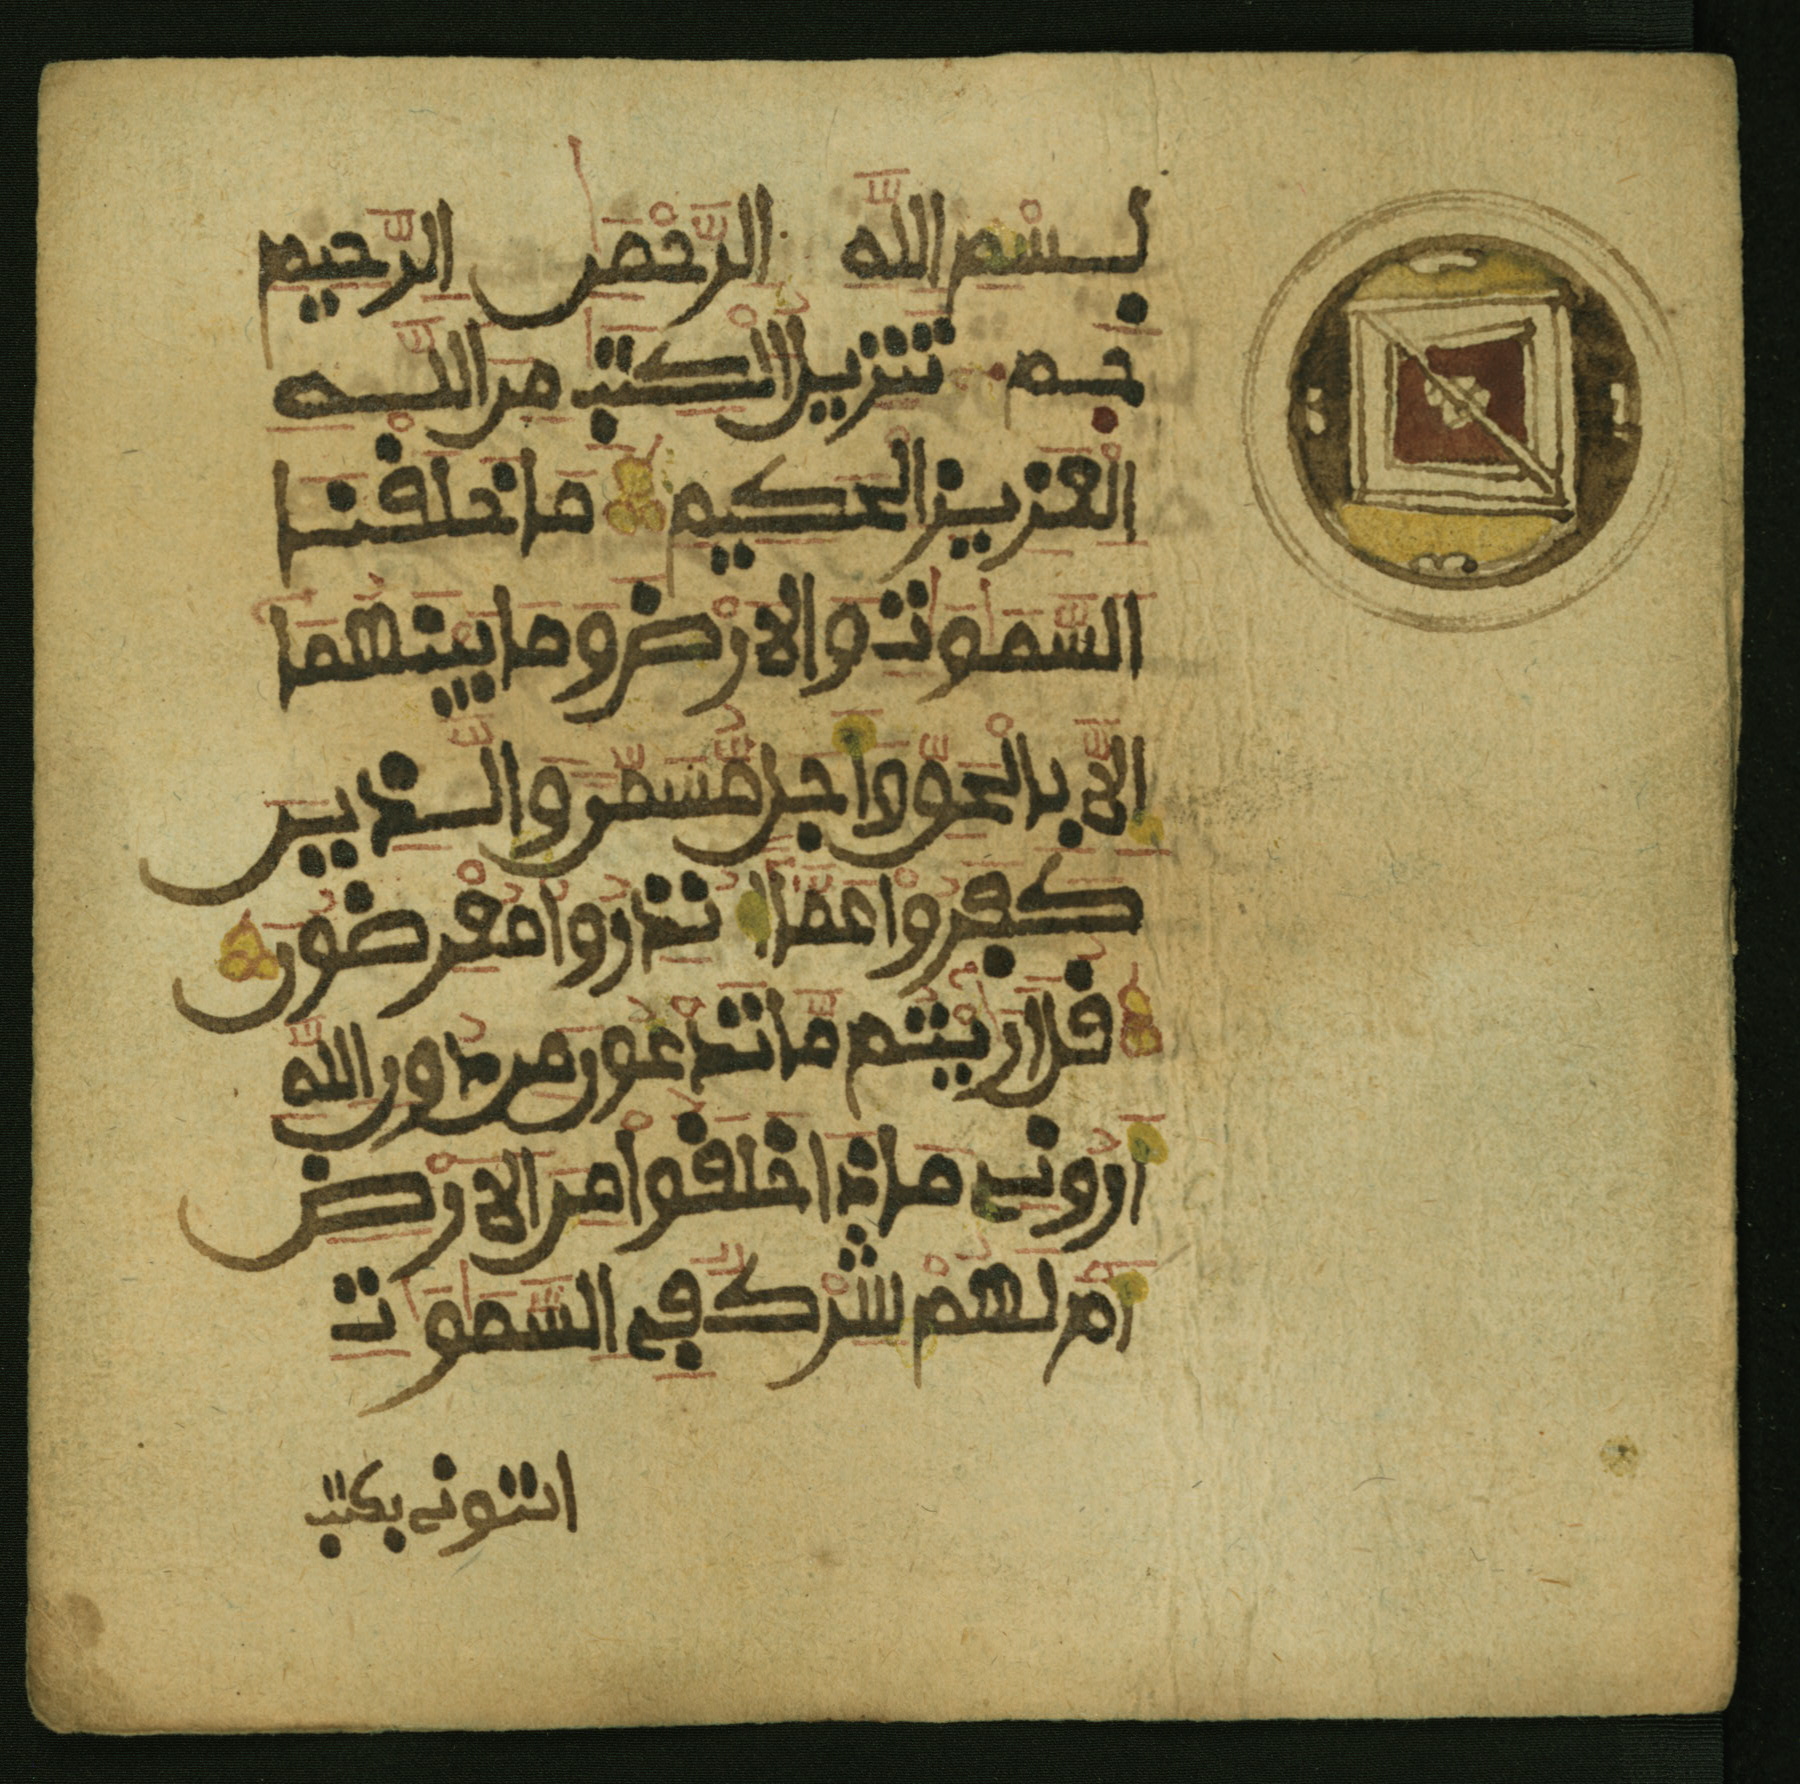 بِسْمِ اللَّهِ الرَّحْمَٰنِ الرَّحِيمِ
حم تَنزِيلُ الْكِتَٰبِ مِنَ اللَّهِ
الْعَزِيزِ الْحَكِيمِ مَا خَلَقْنَا
السَّمَٰوَٰتِ وَالَارْضَ وَمَا بَيْنَهُمَا
إِلَّا بِالْحَقِّ وَأَجَلٍ مُّسَمًّى وَالَّذِينَ
كَفَرُوا عَمَّا أُنذِرُوا مُعْرِضُونَ
قُلَ ارَٰيْتُم مَّا تَدْعُونَ مِن دُونِ اللَّهِ
أَرُونِي مَاذَا خَلَقُوا مِنَ الَارْضِ
أَمْ لَهُمْ شِرْكٌ فِي السَّمَٰوَٰتِ
ائتوني بكتب